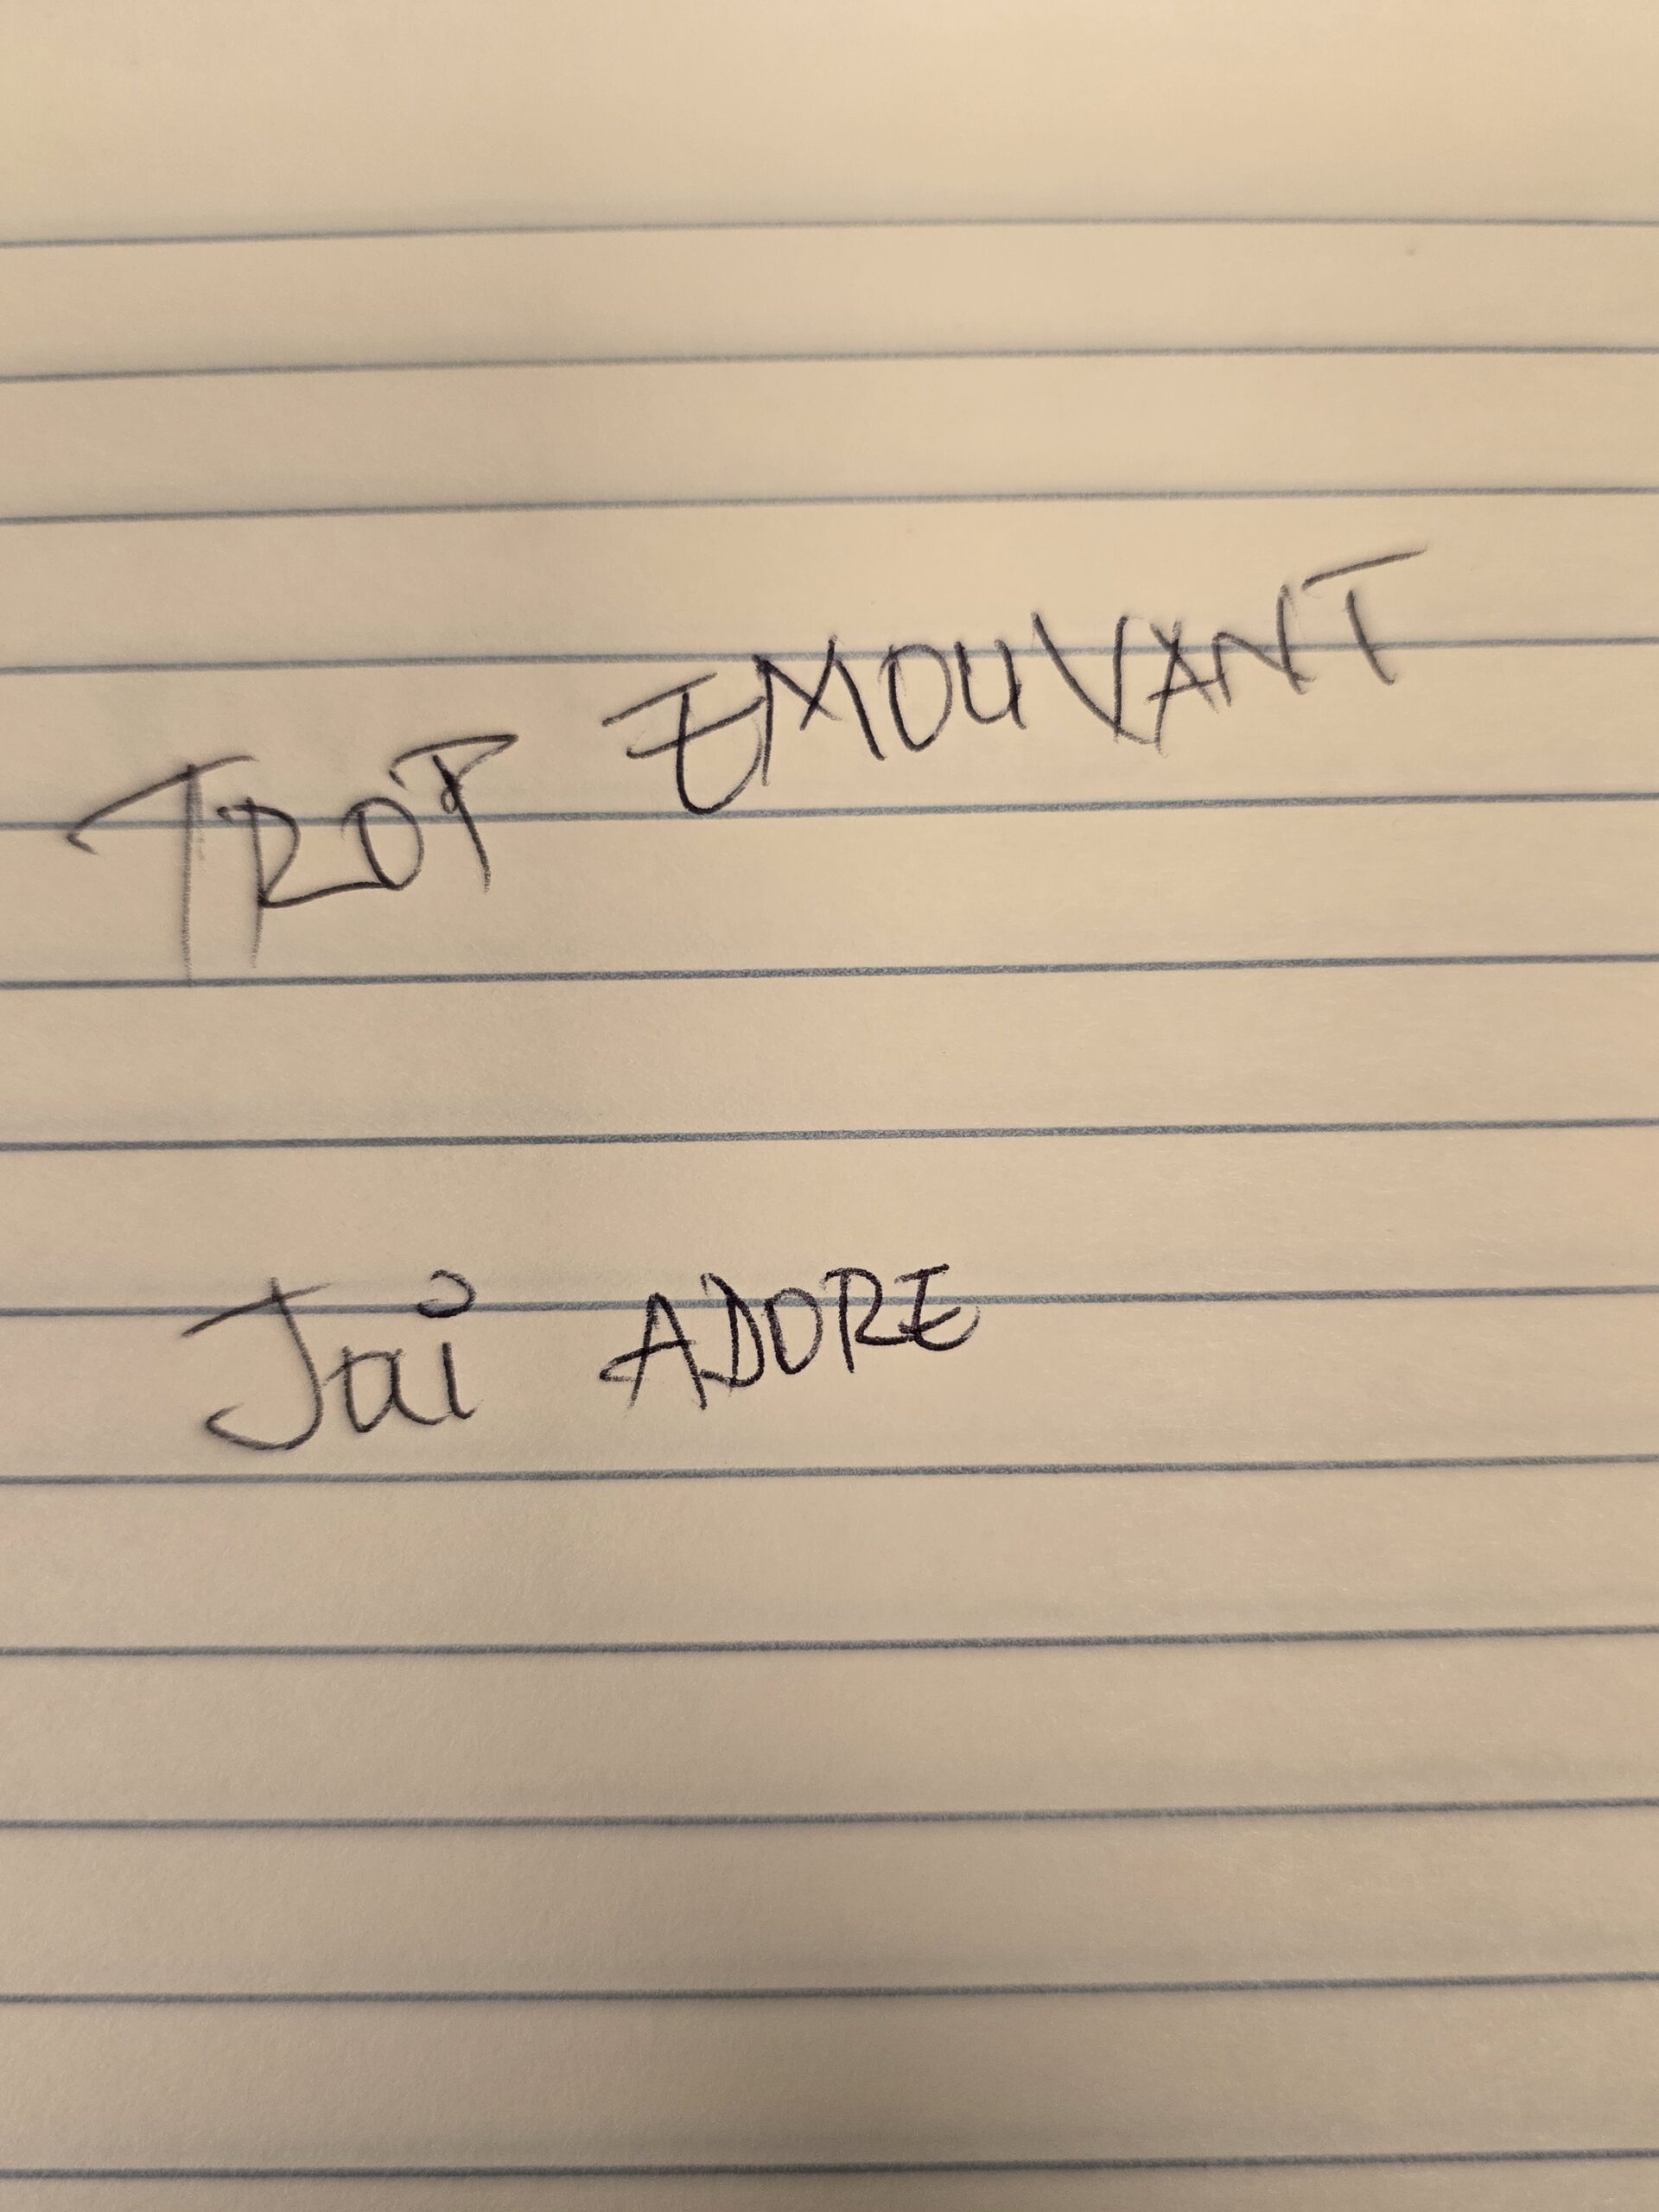 TROP EMOUVANT
Jai ADORE